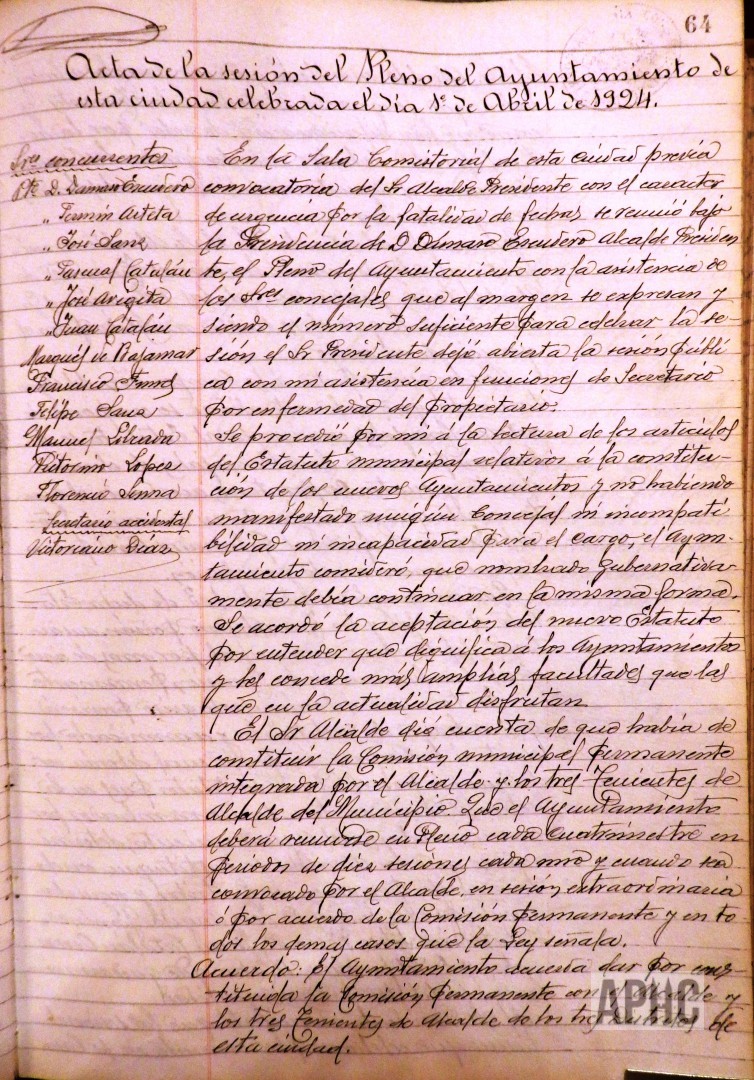 64
Acta de la sesión del Pleno del Ayuntamiento de
esta ciudad celebrada el día 1º de Abril de 1924.
Sres concurrentes
Pte D. Damaso Escudero
" Fermin Arteta
" José Sanz
" Pascual Catalán
" José Arigita
" Juan Catalán
Marqués de Bajamar
Francisco Funes
Felipe Sanz
Manuel Librada
Victorino Lopez
Florencio
Secretario accidental
Victoriano Diaz
En la Sala Consistorial de esta ciudad previa
convocatoria del Sr Alcalde Presidente con el caracter
de urgencia por la fatalidad de fechas se reunió bajo
la Presidencia de D Damaso Escudero Alcalde Presiden
te, el Pleno del Ayuntamiento con la asistencia de
los Sres concejales que al margen se expresan y
siendo el número suficiente para celebrar la se-
sión el Sr Presidente dejó abierta la sesión públi
ca con mi asistencia en funciones de Secretario
por enfermedad del propietario.
Se procedió por mi á la lectura de los artículos
del Estatuto municipal relativos á la constitu-
ción de los nuevos Ayuntamientos y no habiendo
manifestado ningún concejal ni incompati
bilidad ni incapacidad para el cargo, el Ayun-
tamiento consideró, que nombrado gubernativa-
mente debía continuar en la misma forma.
Se acordó la aceptación del nuevo Estatuto
por entender que dignifica á los Ayuntamientos
y les concede más amplias facultades que las
que en la actualidad disfrutan
El Sr Alcalde dió cuenta de que había de
constituir la Comisión municipal permanente
integrada por el Alcalde y los tres Tenientes de
Alcalde del Municipio. Que el Ayuntamiento
deberá reunirse en Pleno cada cuatrimestre en
periodos de diez sesiones cada uno y cuando sea
convocado por el Alcalde, en sesión extraordinaria
ó por acuerdo de la Comisión permanente y en to
dos los demas casos que la Ley señala.
Acuerdo: El Ayuntamiento acuerda dar por cons-
tituida la Comisión permanente con el Alcalde y
los tres Tenientes de Alcalde de los tres distritos de
esta ciudad.
APHC